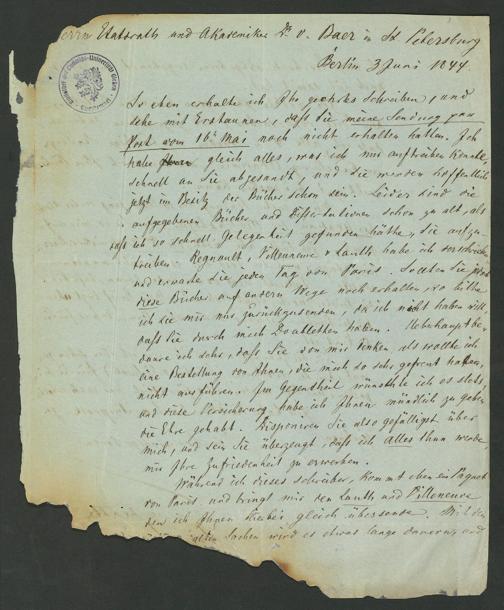 Herrn Etatsrath und Akademiker Dr. v. Baer in St Petersburg
Berlin 3 Juni 1844
So eben erhalte ich Ihr geehrtes Schreiben, und
sehe mit Erstaunen, daß Sie meine Sendung per
Post vom 16t Mai noch nicht erhalten hatten. Ich
habe gleich alles, was ich nur auftreiben konnte,
schnell an Sie abgesandt, und Sie werden hoffentlich
jetzt im Besitz der Bücher schon sein. Leider sind die
aufgegebenen Bücher und Dissertationen schon zu alt, als
daß ich so schnell Gelegenheit gefunden hätte, sie aufzu-
treiben. Regnault, Villeneuve & Lauth habe ich verschrieben
und erwarte sie jeden Tag von Paris. Sollten Sie
diese Bücher auf anderm Wege noch erhalten, so bitte
ich sie mir nur zurückzusenden, da ich nicht haben will,
daß Sie durch mich Doubletten haben. Ueberhaupt be-
daure ich sehr, daß Sie von mir denken als wollte ich
eine Bestellung von Ihnen, die mich so sehr gefreut haben,
nicht ausführen. Im Gegentheil wünschte ich es stets,
und diese Versicherung habe ich Ihnen mündlich zu geben
die Ehre gehabt. Disponiren Sie also gefälligst über
mich, und sein Sie überzeugt, daß ich alles thun werde,
mir Ihre Zufriedenheit zu erwerben.
Während ich dieses schreibe, kommt eben ein Paquet
von Paris und bringt mir den Lauth und Villeneuve
den ich Ihnen hierbei gleich übersende. Mit den
alten Sachen wird es etwas lange dauern, und